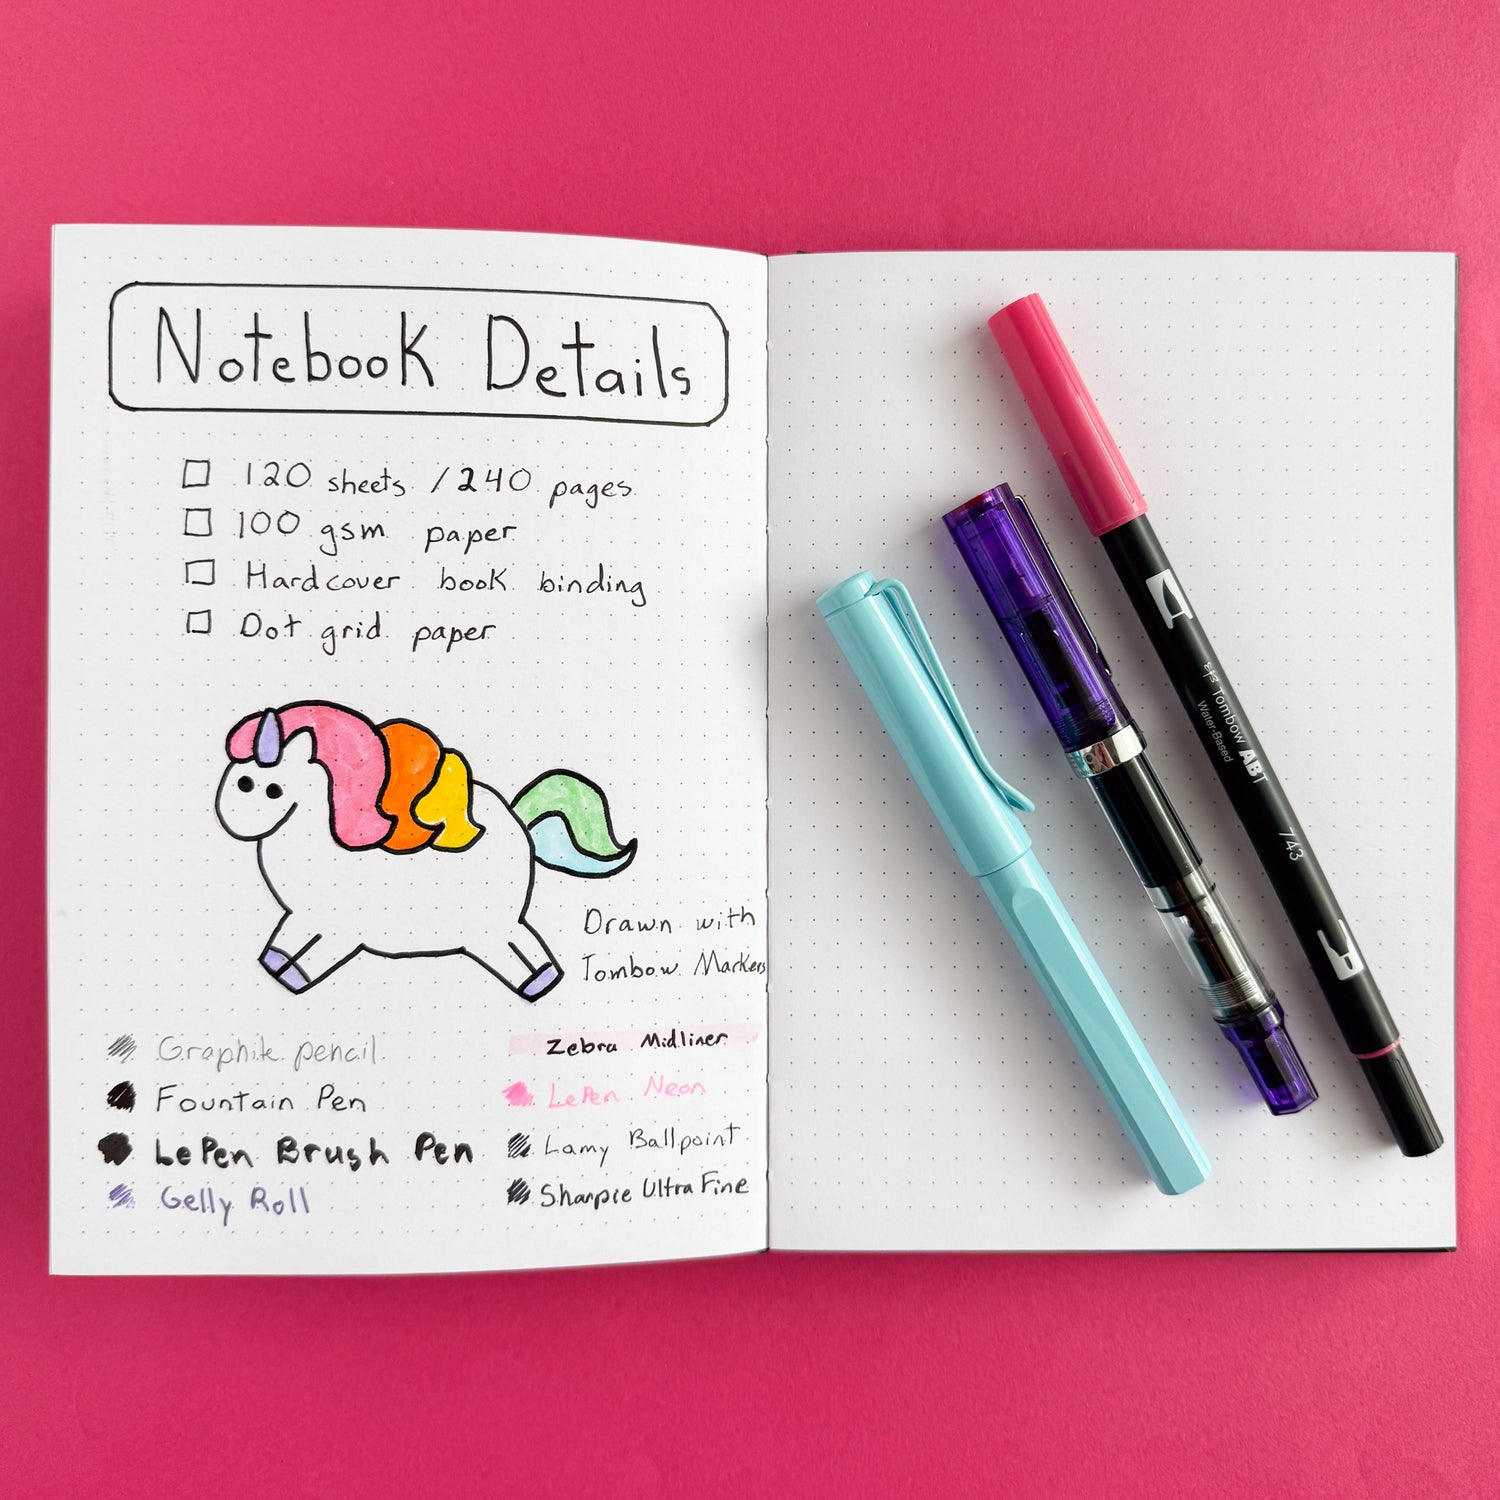 Notebook Details
120 sheets / 240 pages
100 gsm paper
Hardcover book binding
Dot grid paper
Drawn with
Tombow Markers
Graphite pencil
Fountain Pen
LePen Brush Pen
Gelly Roll
Zebra Midliner
LePen Neon
Lamy Ballpoint
Sharpie Ultra Fine
Tombow ABT
Water-Based
743